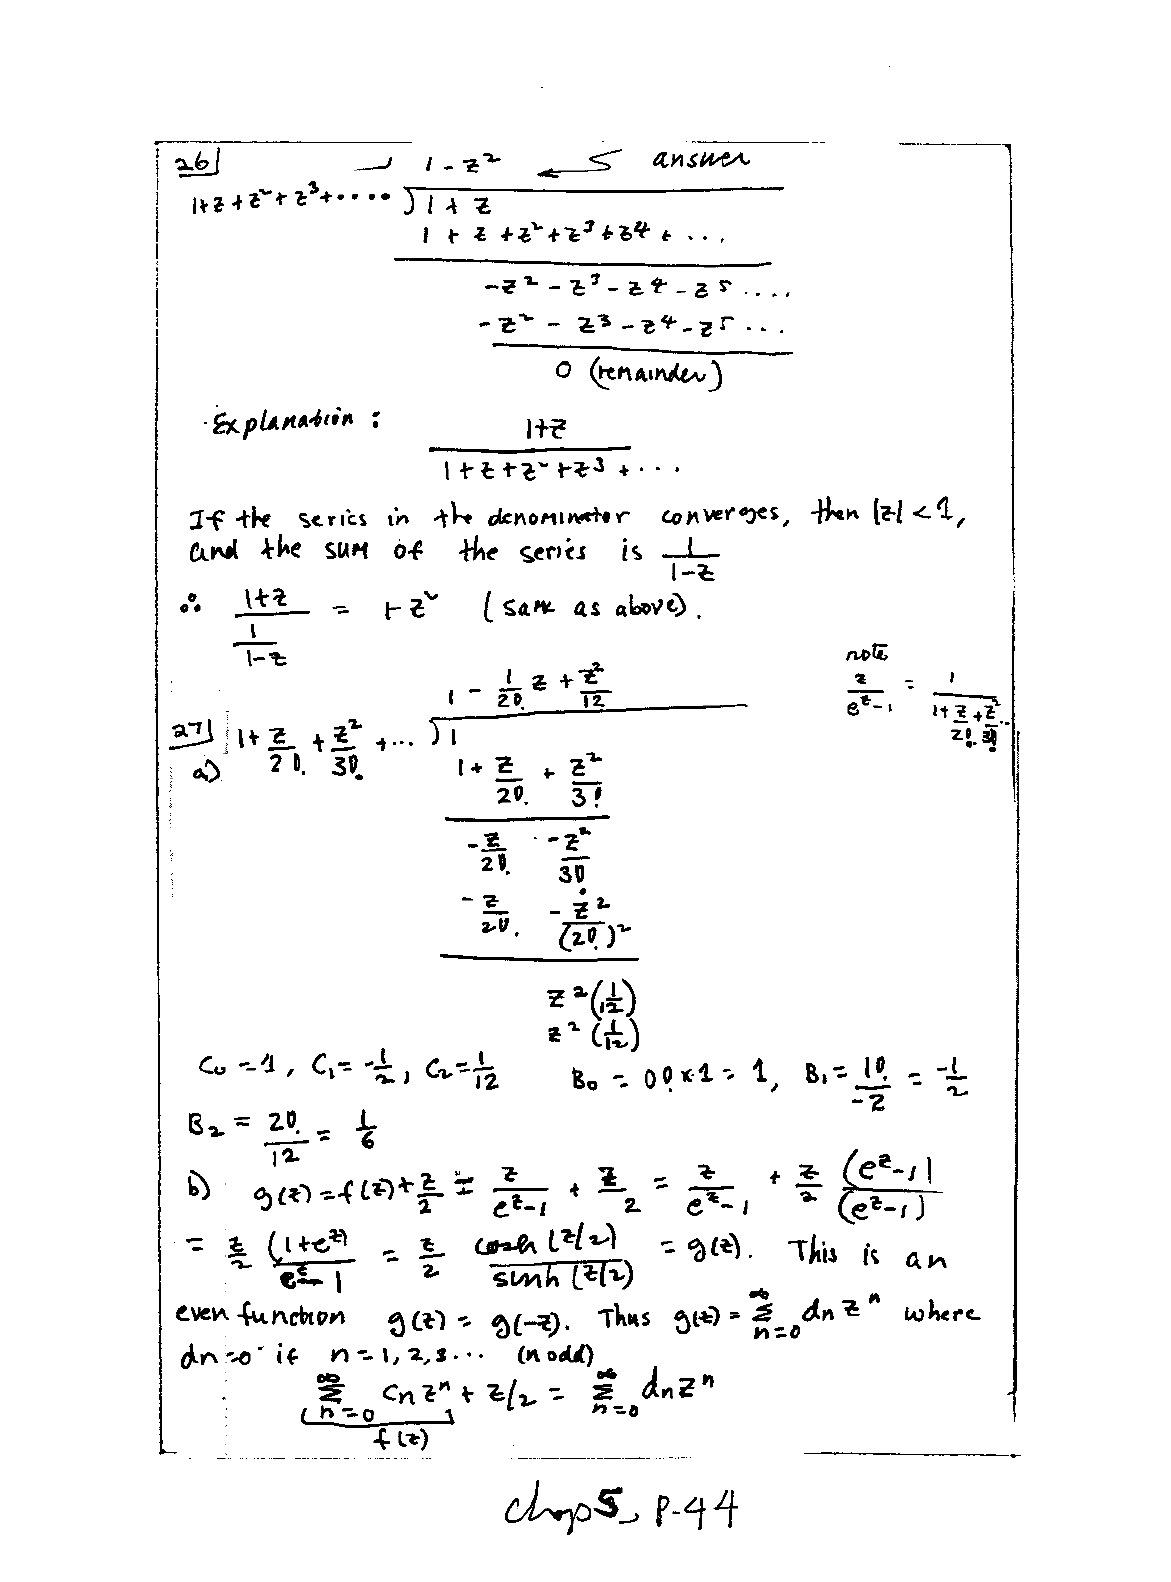 26
1 - z² ← answer
1+z+z²+z³+.... ) 1 + z
1 + z + z² + z³ + z4 + ...
-z² - z³ - z4 - z5 ....
-z² - z3 - z4 - z5 ...
0 (remainder)
Explanation :
1+z / 1+z+z²+z3+...
If the series in the denominator converges, then |z| < 1,
and the sum of the series is 1/(1-z)
∴ (1+z) / (1/(1-z)) = 1-z² (same as above).
note
z/(e^z-1) = 1/(1+z/2!+z²/3!...)
1 - 1/2! z + z²/12
27 a) 1+z/2!+z²/3!+... ) 1
1 + z/2! + z²/3!
-z/2! -z²/3!
-z/2! -z²/(2!)²
z²(1/12)
z²(1/12)
C0 = 1, C1 = -1/2, C2 = 1/12 B0 = 0!x1 = 1, B1 = 1!/-2 = -1/2
B2 = 2!/12 = 1/6
b) g(z) = f(z)+z/2 = z/(e^z-1) + z/2 = z/(e^z-1) + z/2 (e^z-1)/(e^z-1)
= z/2 (1+e^z)/(e^z-1) = z/2 cosh(z/2)/sinh(z/2) = g(z). This is an
even function g(z) = g(-z). Thus g(z) = ∑n=0∞ dn z^n where
dn=0 if n=1,2,3... (n odd)
∑n=0∞ cn z^n + z/2 = ∑n=0∞ dn z^n
f(z)
chap5, p-44